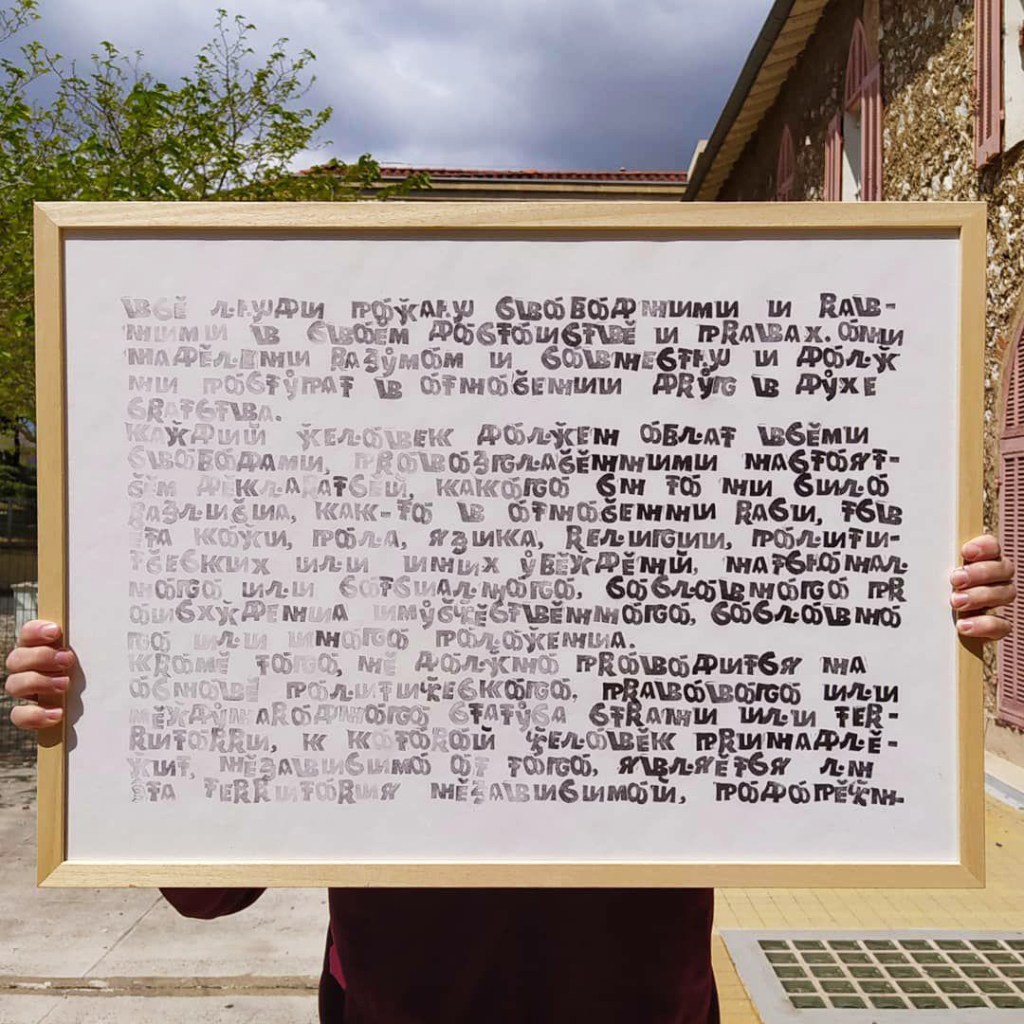 ВСЕ ЛЮДИ РОЖАЮ СВОБОДНИМИ И РАВ-
НИМИ В СВОЕМ ДОСТОИСТВЕ И ПРАВАХ. ОНИ
НАДЕЛЕНИ РАЗУМОМ И СОВНЕСТЮ И ДОЛЖ
НИ ПОСТУПАТ В ОТНОШЕНИИ ДРУГ В ДУХЕ
БРАТСТВА.
КАЖДИЙ ЧЕЛОВЕК ДОЛЖЕН ОБЛАТ ВСЕМИ
СВОБОДАМИ, ПРОВОЗГЛАШЕННИМИ НАСТОЯТ-
ШЕМ ДЕКЛАРАТСЕЙ, КАКОГО БИ ТО НИ БИЛО
РАЗЛИЧИА, КАК-ТО В ОТНОШЕННИ РАСИ, ТСВ
ТА КОЖИ, ПОЛА, ЯЗИКА, РЕЛИГИИ, ПОЛИТИ-
ТШЕСКИХ ИЛИ ИНИХ УБЕЖДЕНИЙ, НАТСЮНАЛ
НОГО ИЛИ СОТСИАЛНОГО, СОСЛОВНОГО ПР
ОИСХУЖДЕНИА ИМУЩЕСТВЕННОГО, СОСЛОВНО
ГО ИЛИ ИНОГО ПОЛОЖЕНИА.
КРОМЕ ТОГО, НЕ ДОЛЖНО ПРОВОДИТСЯ НА
ОСНОВЕ ПОЛИТИЧЕСКОГО, ПРАВОВОГО ИЛИ
МЕЖДУНАРОДНОГО СТАТУСА СТРАНИ ИЛИ ТЕР-
РИТОРРИ, К КОТОРОЙ ЧЕЛОВЕК ПРИНАДЛЕ-
ЖИТ, НЕЗАВИСИМО ОТ ТОГО, ЯВЛЯЕТСЯ ЛИ
ЭТА ТЕРРИТОРИЯ НЕЗАВИСИМОЙ, ПОДОПЕЧН-